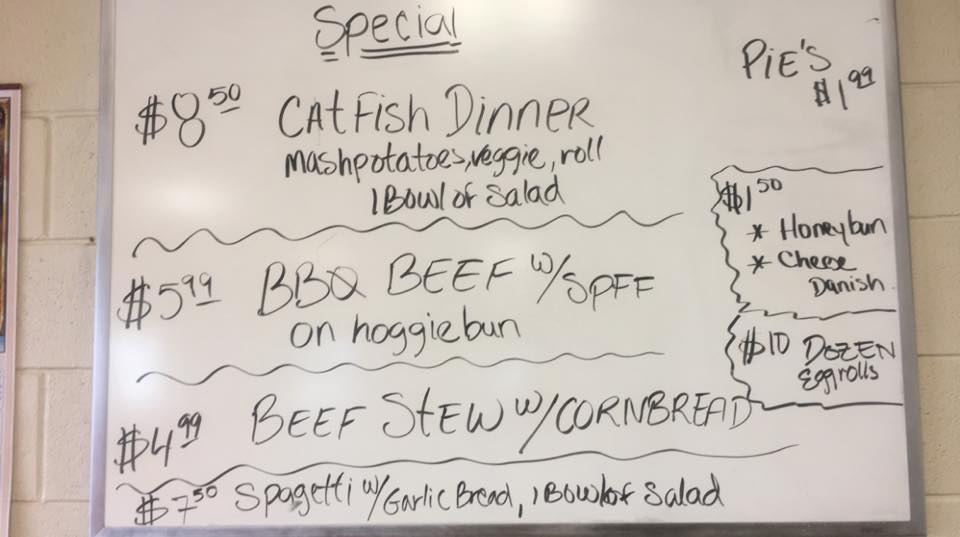 Special
$8.50 CATFISH DINNER
Mashpotatoes, veggie, roll
1 Bowl of Salad
$5.99 BBQ BEEF w/SPFF
on hoggiebun
$4.99 BEEF STEW w/CORNBREAD
$7.50 Spagetti w/Garlic Bread, 1 Bowl of Salad
PiE'S
$1.99
$1.50
* Honeybun
* Cheese
Danish
$10 DOZEN
Eggrolls